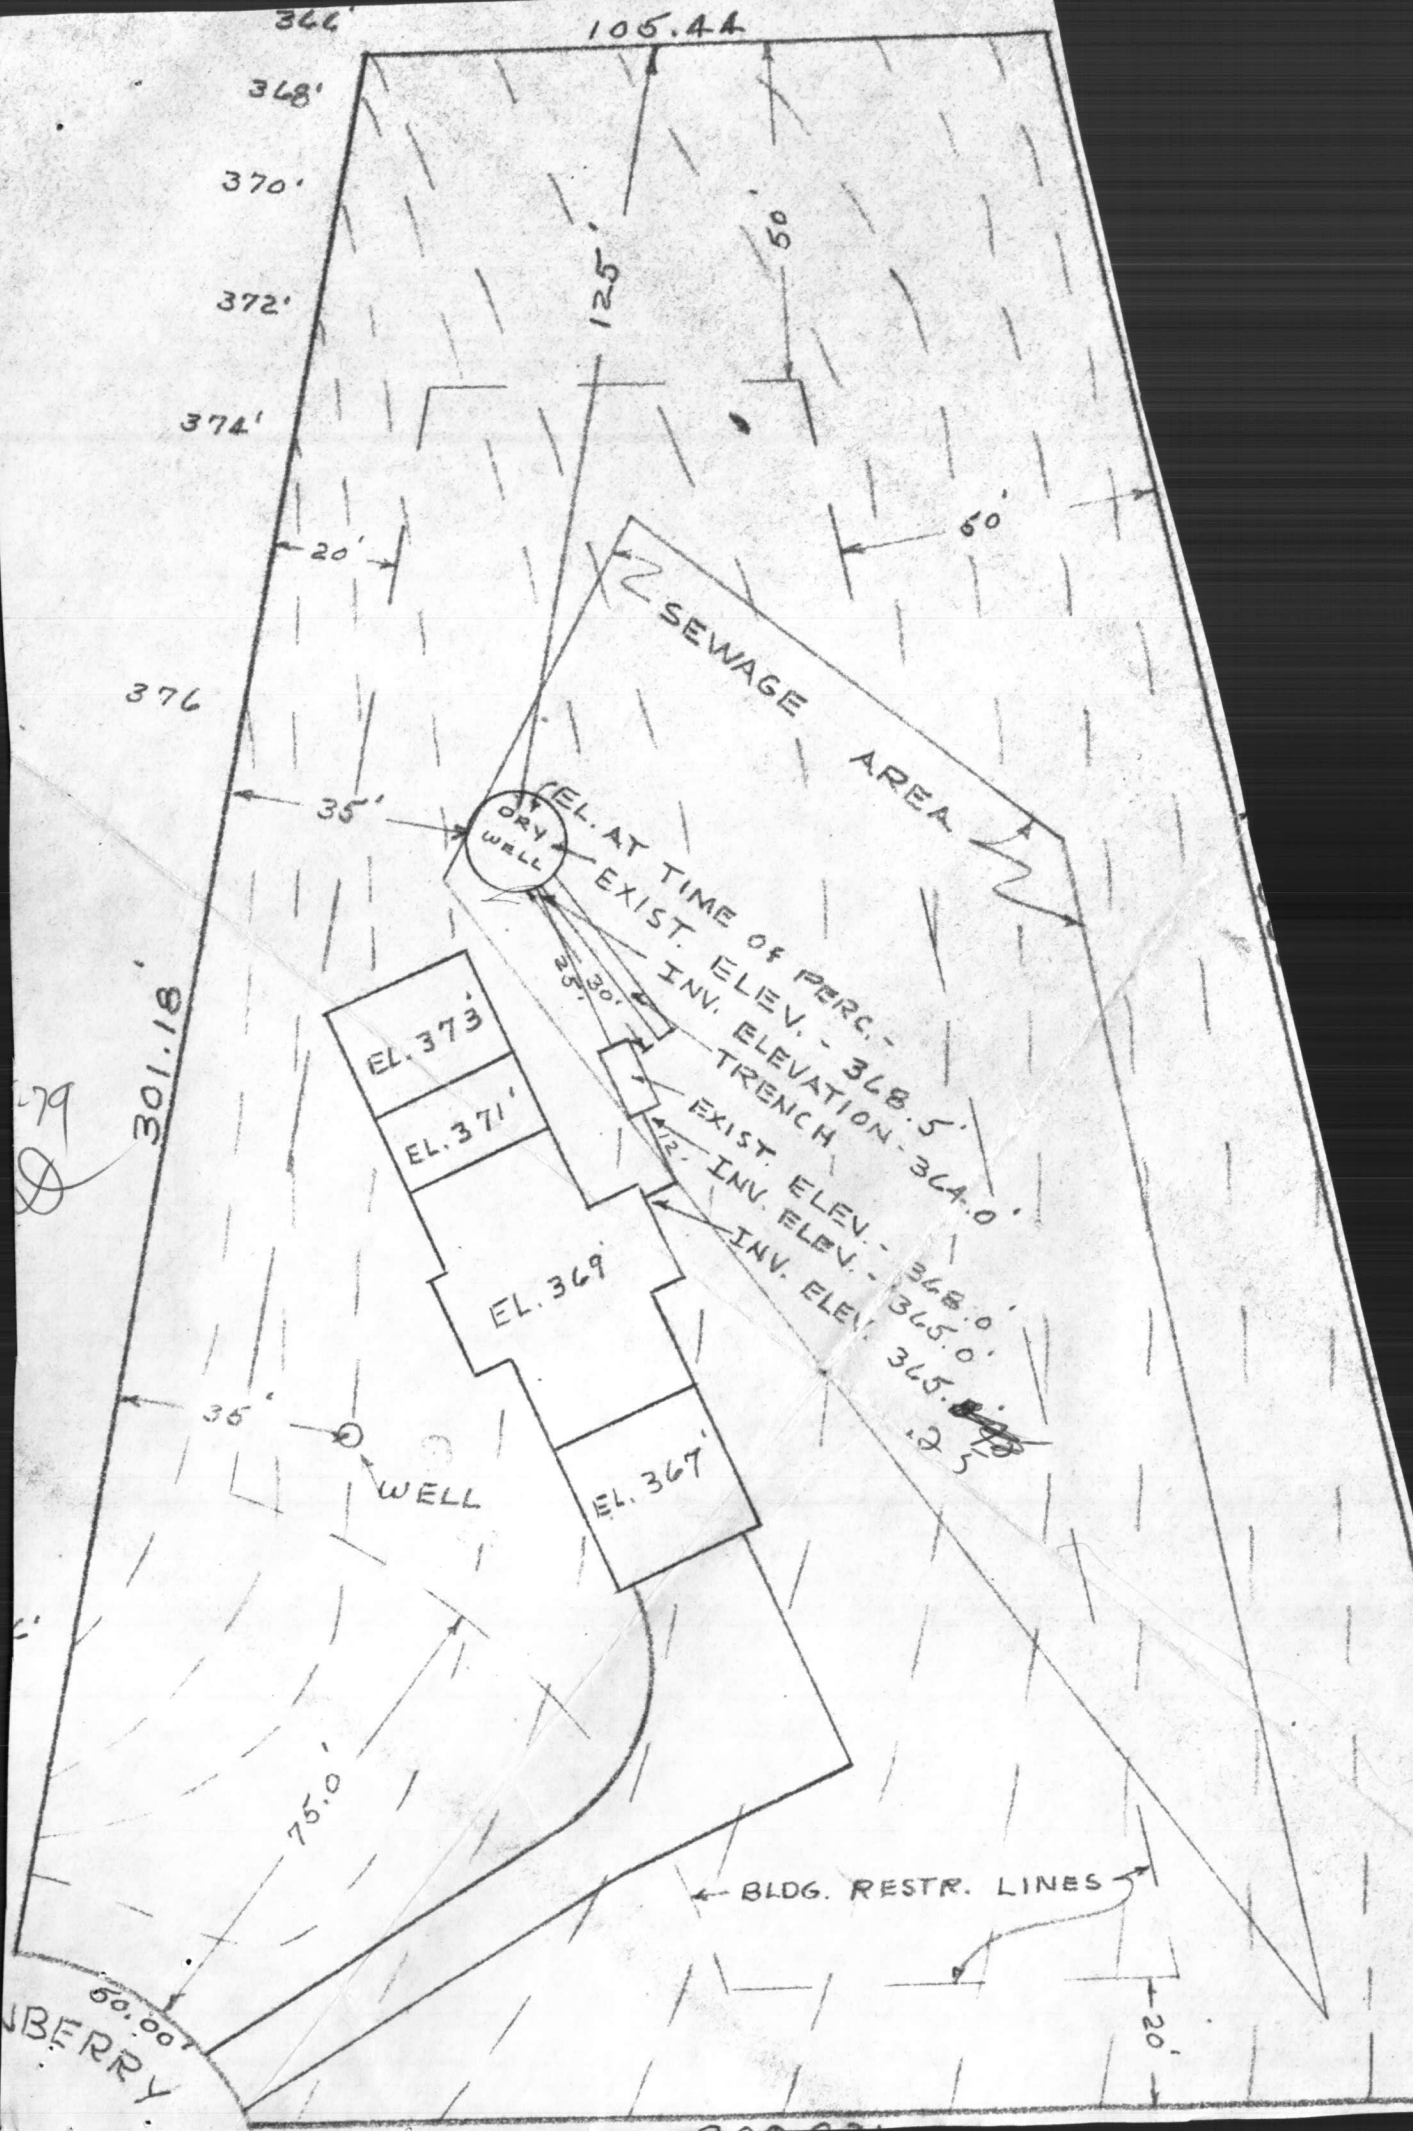 366'
105.44
368'
370'
372'
374'
376
125'
50'
20'
50'
SEWAGE AREA
35'
DRY
WELL
EL. AT TIME OF PERC. -
EXIST. ELEV. - 368.5'
INV. ELEVATION - 364.0'
TRENCH
25'
30'
EXIST. ELEV. - 368.0'
12'
INV. ELEV. - 365.0'
INV. ELEV. 365.
.25
EL. 373'
EL. 371'
EL. 369'
EL. 367'
301.18'
-79
35'
WELL
75.0'
BLDG. RESTR. LINES
20'
50.00'
NBERRY